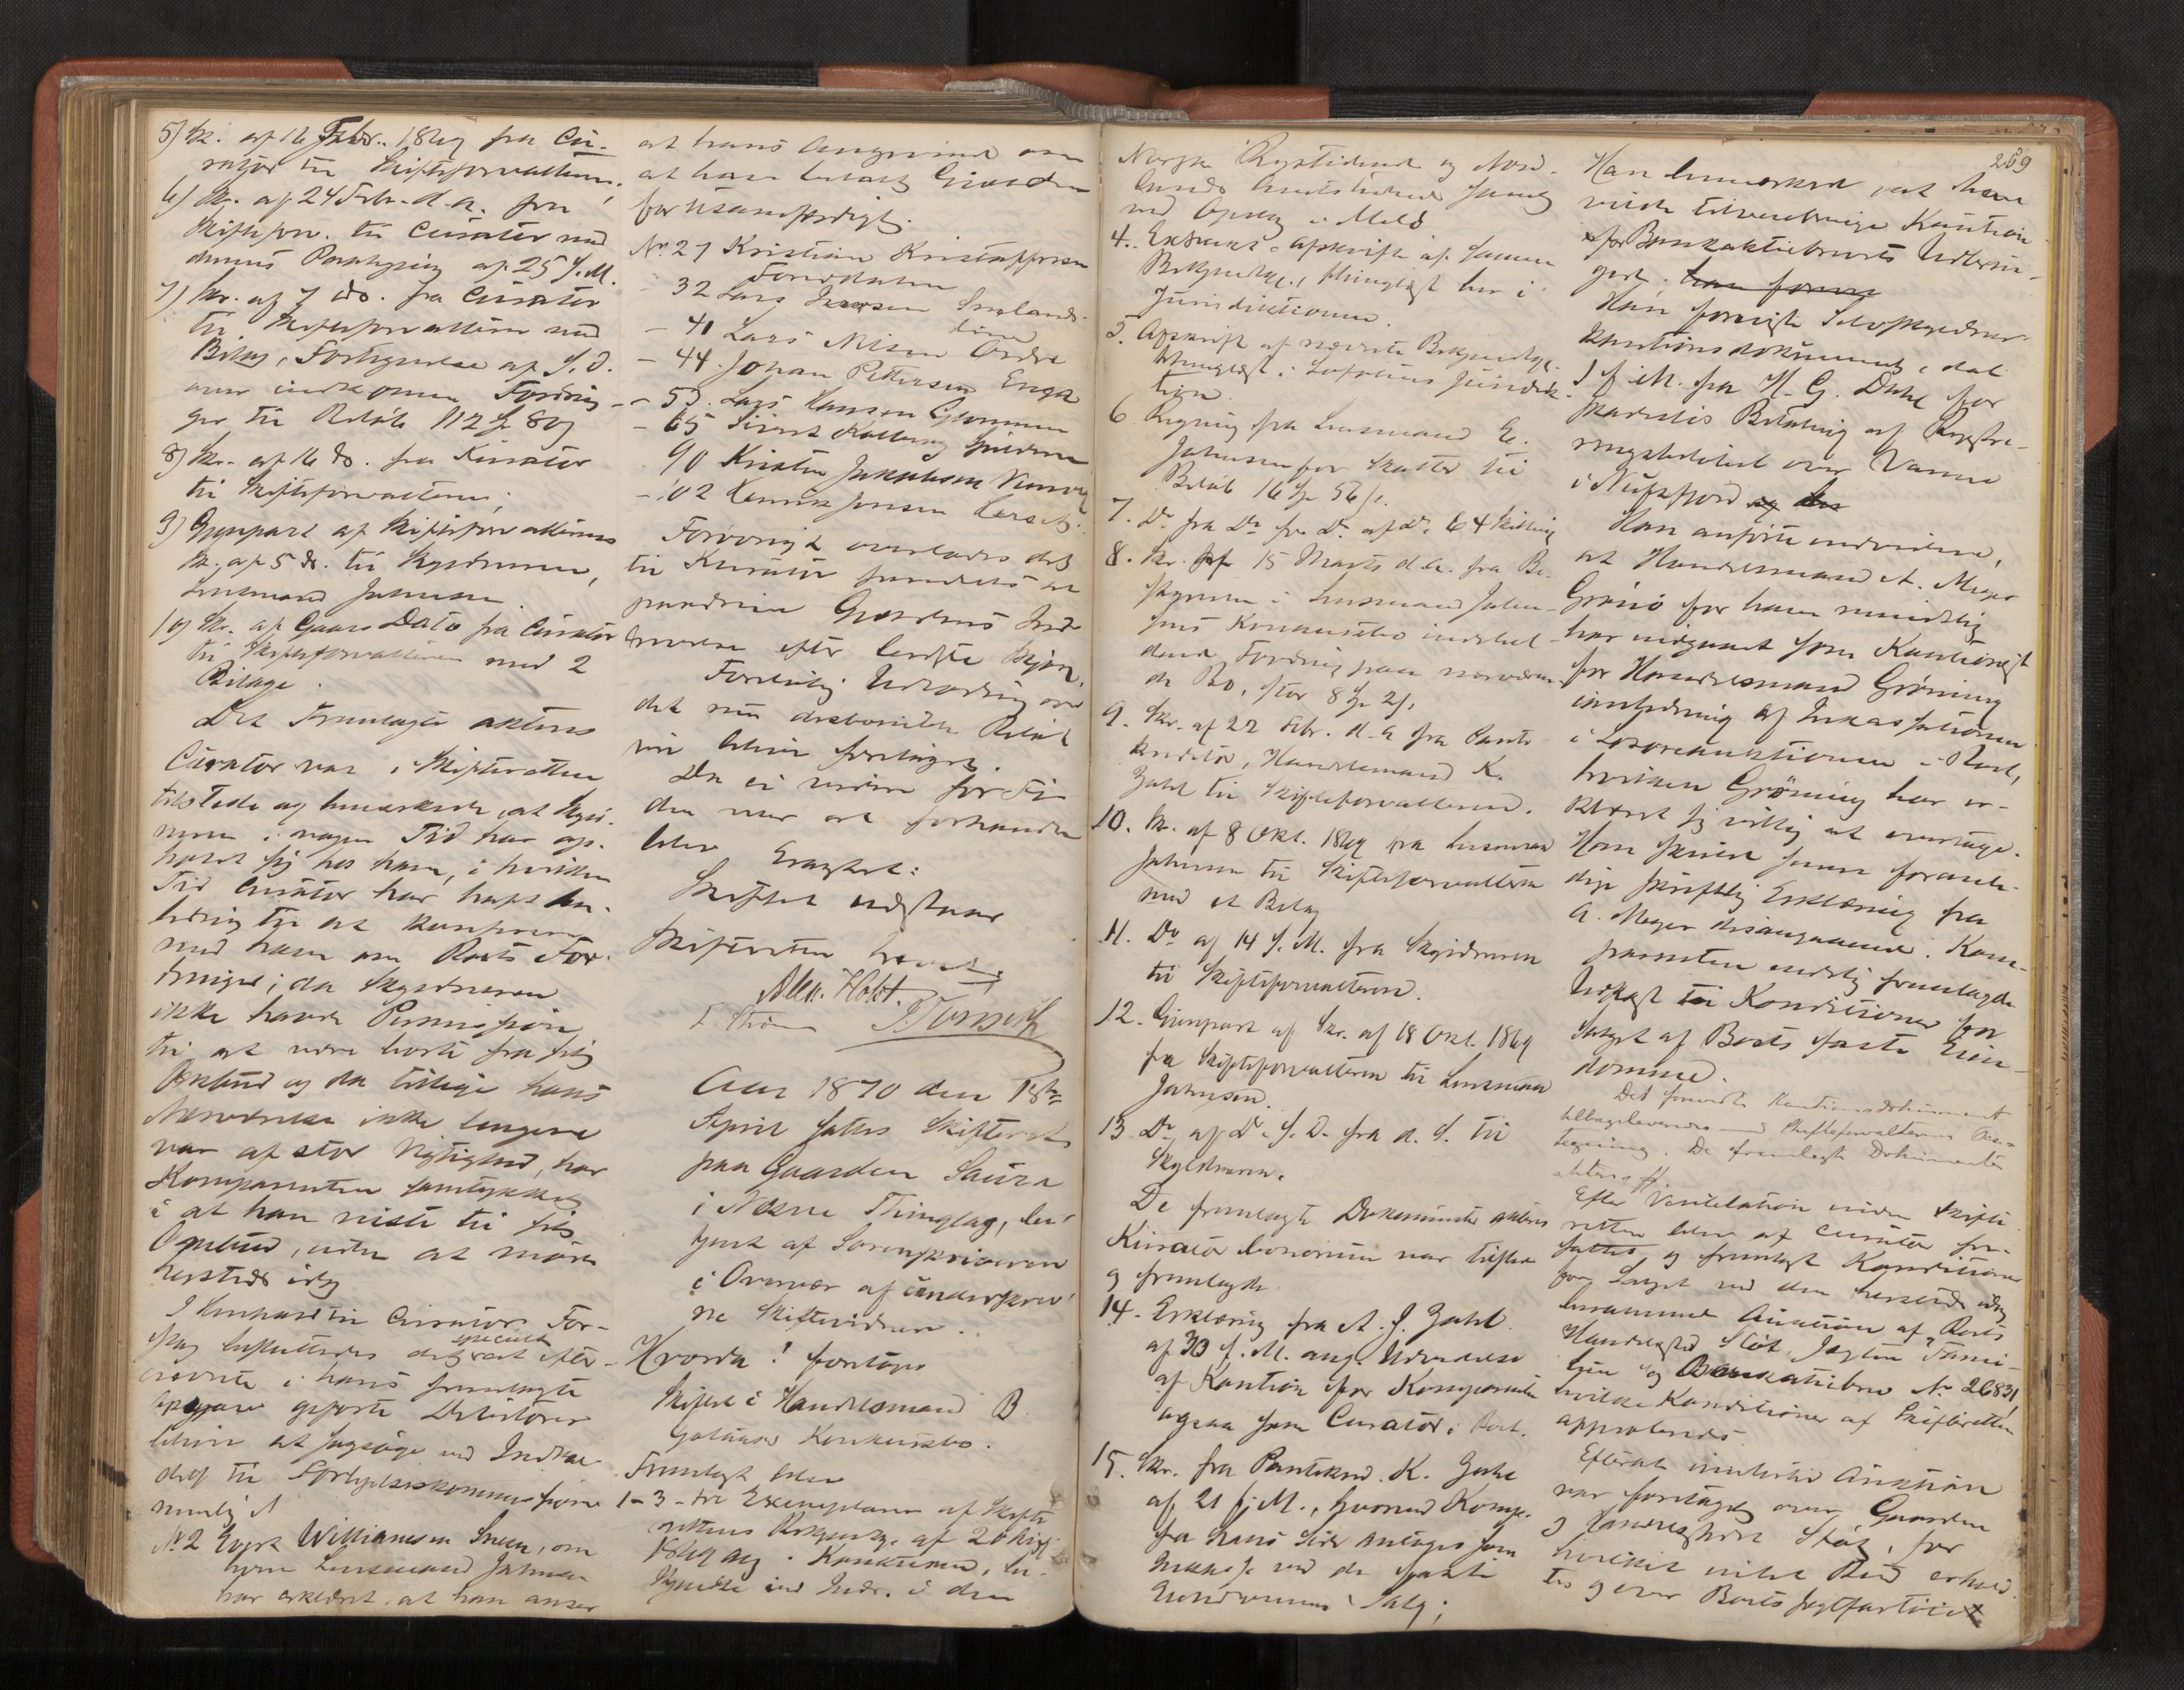 5) Skr. af 16 Febr. 1869 fra Cu-
rator til Skifteforvalteren.
6) Skr. af 24 Febr. d. a. fra
Skifteforv. til Curator med
dennes Paategning af 25 s. M.
7) Skr. af 7 ds. fra Curator
til Skifteforvalteren med
Bilag, Fortegnelse af s. D.
over indkomne Fordrin-
ger til Beløb 112 80
8) Skr. af 16 ds. fra Curator
til Skifteforvalteren.
9) Gjenpart af Skifteforvalterens
Skr. af 5 ds. til Skyldneren,
Lensmand Johnsen
10) Skr. af Gaars Dato fra Curator
til Skifteforvalteren med 2
Bilage.
Det Fremlagte akteres
Curator var i Skifteretten
tilstede og bemærkede, at Skyld-
neren i nogen Tid har op-
holdt sig hos ham, i hvilken
Tid Curator har havt An-
ledning til at konferere
med ham om Boets For-
dringer; da Skyldneren
ikke havde Permission
til at være borte fra sig
Ombud og da tillige hans
Nærværelse ikke længere
var af stor Vigtighed, har
Komparenten samtykket
i at han reiste til sit
Ombud, uden at møde
hersteds idag
I Henhold til Curators For-
slag besluttedes det specielt efter-
nævnte i hans fremlagte
Opgave opførte Debitorer
bliver at sagsøge ved Indkal-
delse til Forligelseskommissionen
nemlig
No 2 Evert Williamsen Sneen, om
hvem Lensmand Johnsen
har erklæret at han anser
at hans Angivende om
at have betalt Gjælden
for usandfærdigt.
No 27 Kristian Kristoffersen
Forsdalen
- 32 Lars Iversen Smolands-
- 41 Lars Nilsen Ordre
- 44. Johan Pettersen Enge
- 53. Lars Hansen
- 65 Sivert
90 Kristen Jakobsen
- 102 Henrik Jensen
Forøvrigt overlades det
til Kurator fremdeles at
paadrive Gjældens Ind-
drivelse efter bedste Skjøn.
Foreløbig Udlodning over
det nu disponible Beløb
vil blive foretaget.
Da ei videre for Ti-
den var at forhandle
blev Eragtet:
Skiftet udstaar
Skifteretten hævet
Alex. Holst.
Aar 1870 den 18de
April sattes Skifteret
paa Gaarden Saura
i Nesne Thinglag, be-
tjent af Sorenskriveren
i Overvær af underskrev-
ne Skiftevidner.
Hvorda! foretoges
Skiftet i Handelsmand B
Konkursbo.
Fremlagt blev
1-3 - tre Exemplarer af Skifte-
rettens Bekjendtg. af 20 Aug.
1869 ang. Konkursen, be-
kjendte ved Indr. i den
Norske Rigstidende og Nord-
lands Amtstidende samt
ved Opslag i Melø
4. Extrakt-Afskrift af samme
Bekjendtg., thinglæst her i
Jurisdiktionen.
5. Afskrift af nævnte Bekjendtg.
thinglæst i Lofotens Jurisdik-
tion.
6. Regning fra Lensmand E.
Johnsen for Skatter til
Beløb 16 56 s.
7. Do fra Do for Do af Do 64 Skilling
8. Skr. af 15 Marts d. a. fra Be-
styreren i Lensmand John-
sens Konkursbo indehol-
dende Fordring paa nærværen-
de Bo, stor 8 2 s.
9. Skr. af 22 Febr. d. a fra Pante-
kreditor, Handelsmand K.
Zahl til Skifteforvalteren.
10. Skr. af 8 Okt. 1869 fra Lensmand
Johnsen til Skifteforvalteren
med et Bilag
11. Do af 14 s. M. fra Skyldneren
til Skifteforvalteren.
12. Gjenpart af Skr. af 18 Okt. 1869
fra Skifteforvalteren til Lensmand
Johnsen.
13 Do af Do. s. D. fra d. s. til
Skyldneren.
De fremlagte Dokumenter akteres
Kurator bonorum var tilstede
og fremlagde
14. Erklæring fra A. J. Zahl
af 30 f. M. ang. Udvidelse
af Kaution for Komparenten
ogsaa som Curator i Boet.
15. Skr. fra Pantekred. K. Zahl
af 21 f. M., hvorved Komp.
fra hans Side antages som
ved de faste
Eiendommes Salg;
269
Han bemærkede, at han
vilde tilveiebringe Kaution
for Bankaktiebrevets Udlevering
Han foreviste Selvskyldner-
kautionsdokument, dat.
f. M. fra H. G. Dahl for
skadesløs Betaling af Registre-
ringsbeløbet over Varene
i Nufsfjord
Han anførte endvidere,
at Handelsmand A. Meyer
Grønø for ham mundtlig
har vedgaaet som Kautionist
for Handelsmand Grøning
i Løsøreauktionen i Rost,
hvilken Grøning har er-
klæret sig villig at overtage.
Han skulde senere foranle-
dige skriftlig Erklæring fra
A. Meyer desangaaende. Kom-
parenten endelig fremlagde
Udkast til Konditioner for
Salget af Boets faste Eien-
domme.
Det foreviste Kautionsdokument
tilbageleveredes med Skifteforvalterens Paa-
tegning. De fremlagte Dokumenter
akteres
Efter Ventilation inden Skifte-
retten blev af Curator for-
fattet og fremlagt Konditioner
for Salget ved den hersteds idag
berammede Auktion af Boets
Handelssted Støt, Jagten Fami-
lien og Bankaktiebrev No 26831
hvilke Konditioner af Skifteretten
approberedes.
Efterat imidlertid Auktion
var foretaget over Gaarden
og Handelsstedet Støt, for
hvilket intet Bud erhold-
tes og over Boets Jagtfartøiet